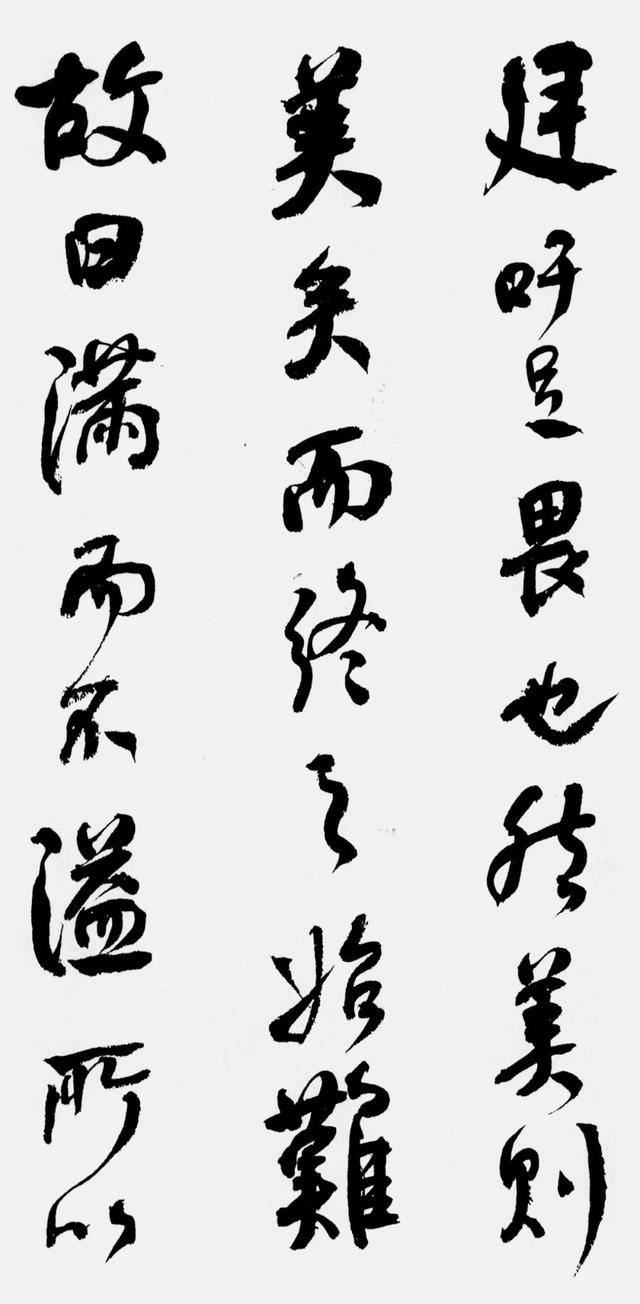 廷吁足畏也然美則
美矣而終之始難
故曰滿而不溢所以